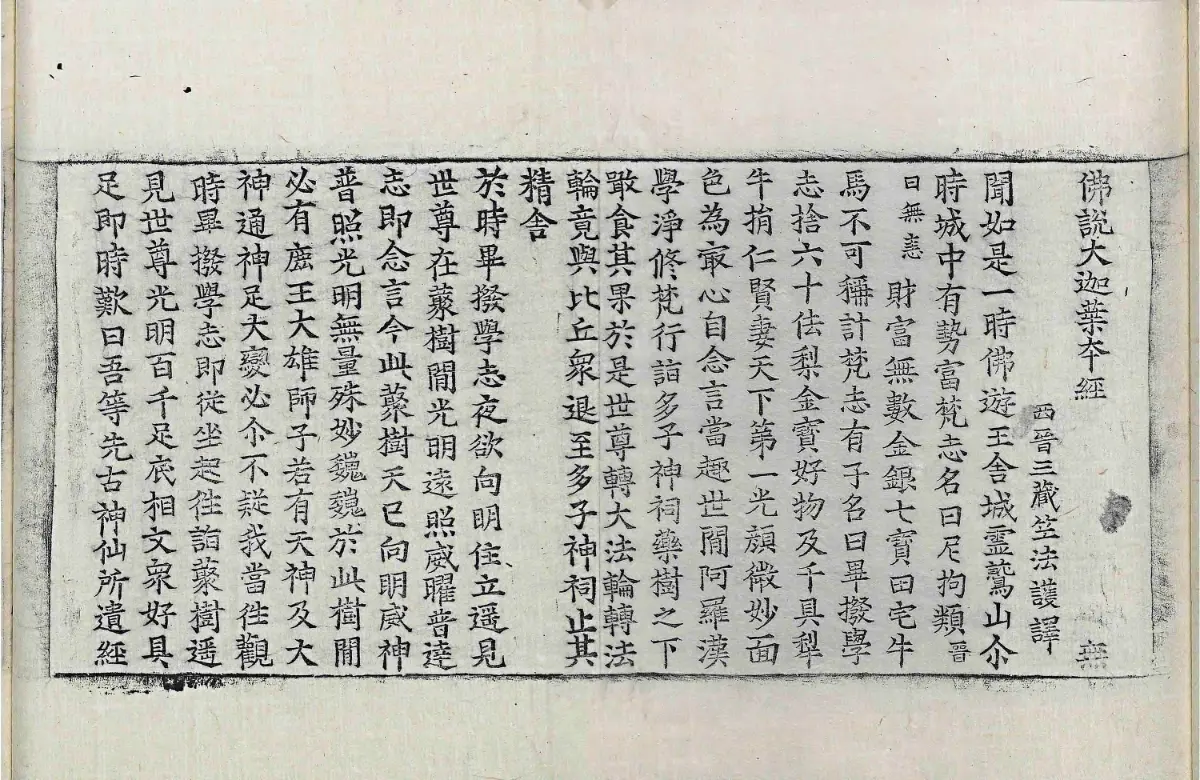 佛說大迦葉夲經 無
西晉三藏竺法護譯
聞如是一時佛遊王舍城靈鷲山尒
時城中有勢富梵志名曰尼拘類晉
曰無恚財富無數金銀七寶田宅牛
馬不可稱計梵志有子名曰畢撥學
志捨六十佉梨金寶好物及千具犂
牛捐仁賢妻天下第一光顏微妙面
色為冣心自念言當趣世間阿羅漢
學淨修梵行詣多子神祠藂樹之下
噉食其果於是世尊轉大法輪轉法
輪竟與比丘衆退至多子神祠止其
精舍
於時畢撥學志夜欲向明住立遥見
世尊在藂樹間光明遠照威曜普達
志即念言今此藂樹天已向明威神
普照光明無量殊妙巍巍於此樹間
必有鹿王大雄師子若有天神及大
神通神足大變必尒不疑我當往觀
時畢撥學志即從坐起往詣藂樹遥
見世尊光明百千足底相文衆好具
足即時歎曰吾等先古神仙所遺經